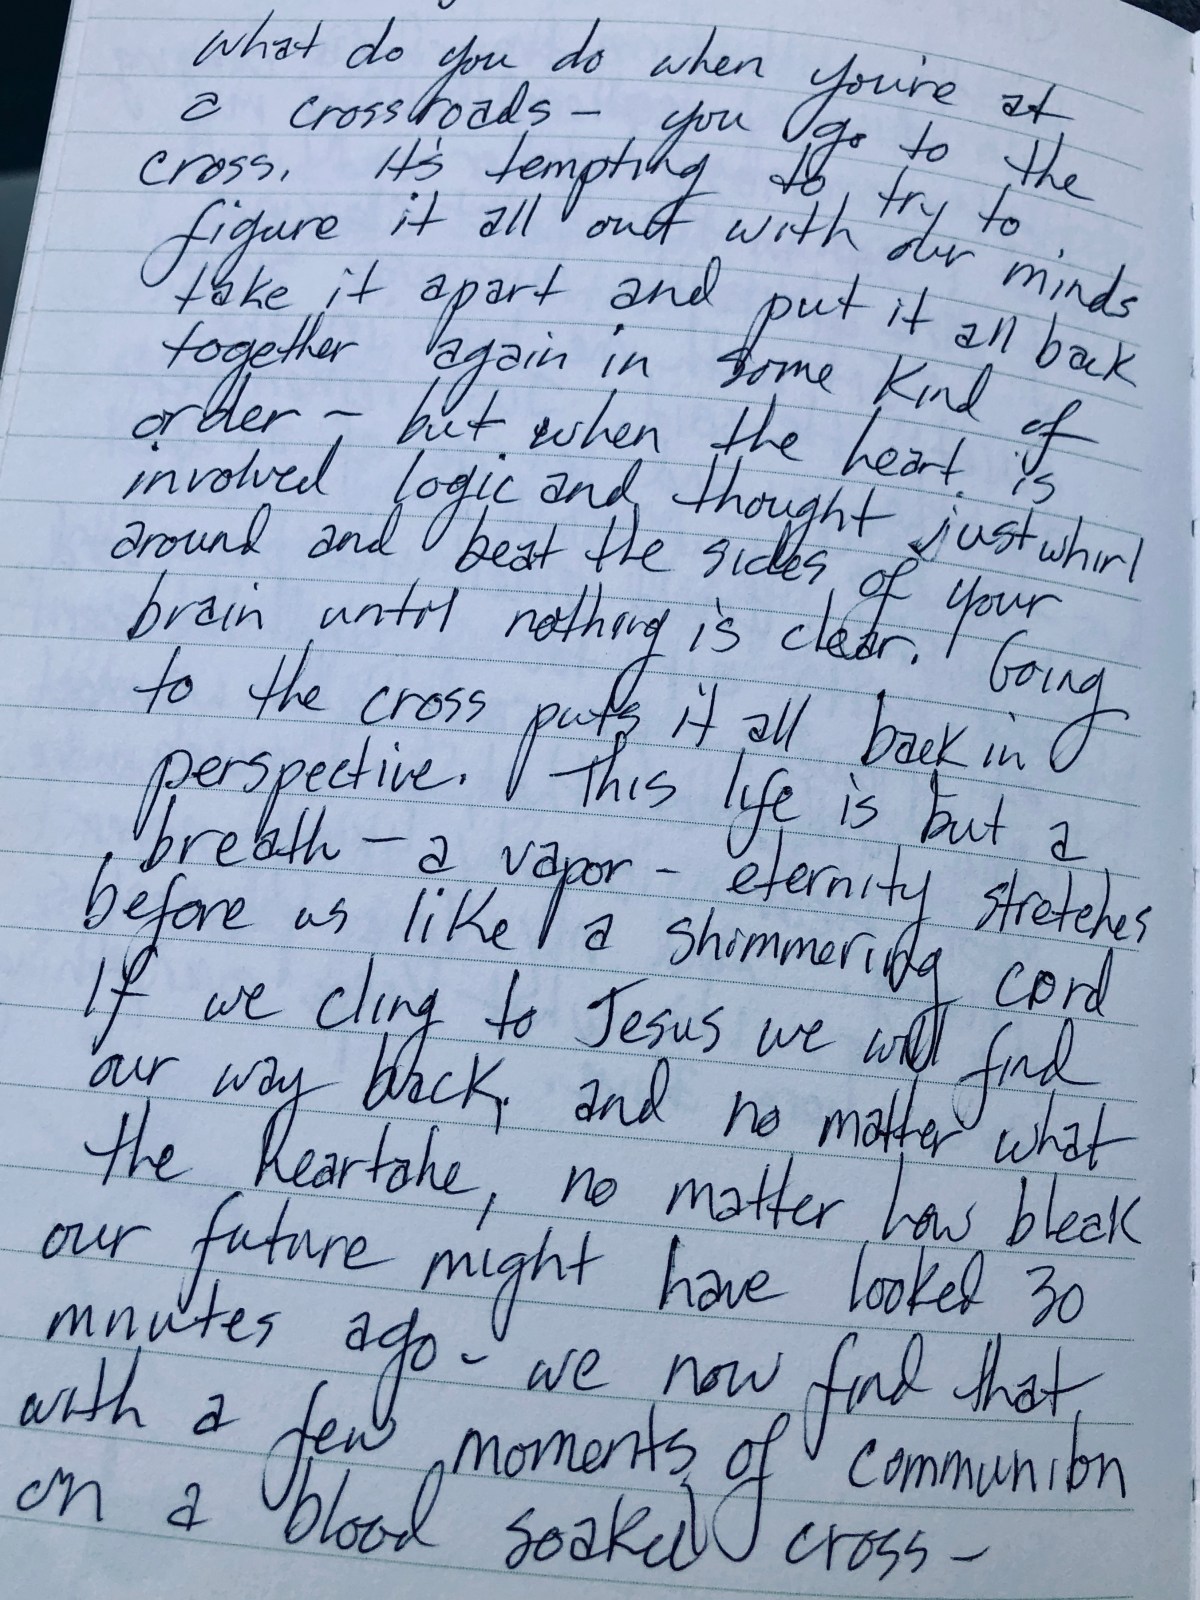 what do you do when you're at
a crossroads - you go to the
cross. It's tempting to try to
figure it all out with our minds
take it apart and put it all back
together again in some kind of
order - but when the heart is
involved logic and thought just whirl
around and beat the sides of your
brain until nothing is clear. Going
to the cross puts it all back in
perspective. This life is but a
breath - a vapor - eternity stretches
before us like a shimmering cord
If we cling to Jesus we will find
our way back. and no matter what
the heartahe, no matter how bleak
our future might have looked 30
mnutes ago - we now find that
with a few moments of communion
on a blood soaked cross -